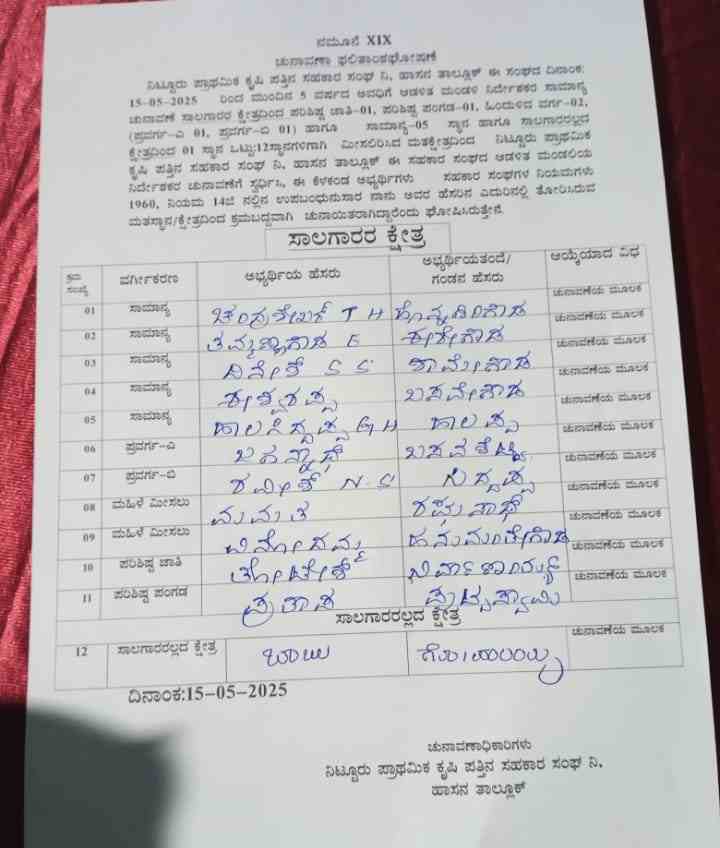 ನಮೂನೆ XIX
ಚುನಾವಣಾ ಫಲಿತಾಂಶಘೋಷಣೆ
ನಿಟ್ಟೂರು ಪ್ರಾಥಮಿಕ ಕೃಷಿ ಪತ್ತಿನ ಸಹಕಾರ ಸಂಘ ನಿ, ಹಾಸನ ತಾಲ್ಲೂಕ್ ಈ ಸಂಘದ ದಿನಾಂಕ:
15-05-2025 ರಿಂದ ಮುಂದಿನ 5 ವರ್ಷದ ಅವಧಿಗೆ ಆಡಳಿತ ಮಂಡಳಿ ನಿರ್ದೇಶಕರ ಸಾಮಾನ್ಯ
ಚುನಾವಣೆ ಸಾಲಗಾರರ ಕ್ಷೇತ್ರದಿಂದ ಪರಿಶಿಷ್ಟ ಜಾತಿ-01, ಪರಿಶಿಷ್ಟ ಪಂಗಡ-01, ಹಿಂದುಳಿದ ವರ್ಗ-02,
(ಪ್ರವರ್ಗ-ಎ 01, ಪ್ರವರ್ಗ-ಬಿ 01) ಹಾಗೂ ಸಾಮಾನ್ಯ-05 ಸ್ಥಾನ ಹಾಗೂ ಸಾಲಗಾರರಲ್ಲದ
ಕ್ಷೇತ್ರದಿಂದ 01 ಸ್ಥಾನ ಒಟ್ಟು:12ಸ್ಥಾನಗಳಿಗಾಗಿ ಮೀಸಲಿರಿಸಿದ ಮತಕ್ಷೇತ್ರದಿಂದ ನಿಟ್ಟೂರು ಪ್ರಾಥಮಿಕ
ಕೃಷಿ ಪತ್ತಿನ ಸಹಕಾರ ಸಂಘ ನಿ, ಹಾಸನ ತಾಲ್ಲೂಕ್ ಈ ಸಹಕಾರ ಸಂಘದ ಆಡಳಿತ ಮಂಡಳಿಯ
ನಿರ್ದೇಶಕರ ಚುನಾವಣೆಗೆ ಸ್ಪರ್ಧಿಸಿ, ಈ ಕೆಳಕಂಡ ಅಭ್ಯರ್ಥಿಗಳು ಸಹಕಾರ ಸಂಘಗಳ ನಿಯಮಗಳು
1960, ನಿಯಮ 14ಜಿ ನಲ್ಲಿನ ಉಪಬಂಧನುಸಾರ ನಾನು ಅವರ ಹೆಸರಿನ ಎದುರಿನಲ್ಲಿ ತೋರಿಸಿರುವ
ಮತಸ್ಥಾನ/ಕ್ಷೇತ್ರದಿಂದ ಕ್ರಮಬದ್ಧವಾಗಿ ಚುನಾಯಿತರಾಗಿದ್ದಾರೆಂದು ಘೋಷಿಸಿರುತ್ತೇನೆ.
ಸಾಲಗಾರರ ಕ್ಷೇತ್ರ
ಕ್ರಮ ಸಂಖ್ಯೆ ವರ್ಗೀಕರಣ ಅಭ್ಯರ್ಥಿಯ ಹೆಸರು ಅಭ್ಯರ್ಥಿಯತಂದೆ/ ಗಂಡನ ಹೆಸರು ಆಯ್ಕೆಯಾದ ವಿಧ
01 ಸಾಮಾನ್ಯ ಚಂದ್ರಶೇಖರ್ T H ಚುನಾವಣೆಯ ಮೂಲಕ
02 ಸಾಮಾನ್ಯ ಚುನಾವಣೆಯ ಮೂಲಕ
03 ಸಾಮಾನ್ಯ ದಿನೇಶ್ S S ಚುನಾವಣೆಯ ಮೂಲಕ
04 ಸಾಮಾನ್ಯ ಬಸವೇಗೌಡ ಚುನಾವಣೆಯ ಮೂಲಕ
05 ಸಾಮಾನ್ಯ ಹಾಲಸಿದ್ದಪ್ಪ G H ಹಾಲಪ್ಪ ಚುನಾವಣೆಯ ಮೂಲಕ
06 ಪ್ರವರ್ಗ-ಎ ಬಸವಶೆಟ್ಟಿ ಚುನಾವಣೆಯ ಮೂಲಕ
07 ಪ್ರವರ್ಗ-ಬಿ ರವೀಶ್ N.S ಸಿದ್ದಪ್ಪ ಚುನಾವಣೆಯ ಮೂಲಕ
08 ಮಹಿಳೆ ಮೀಸಲು ಮಮತ ರಘುನಾಥ್ ಚುನಾವಣೆಯ ಮೂಲಕ
09 ಮಹಿಳೆ ಮೀಸಲು ವಿನೋದಮ್ಮ ಹನುಮಂತೇಗೌಡ ಚುನಾವಣೆಯ ಮೂಲಕ
10 ಪರಿಶಿಷ್ಟ ಜಾತಿ ಚುನಾವಣೆಯ ಮೂಲಕ
11 ಪರಿಶಿಷ್ಟ ಪಂಗಡ ಪುಟ್ಟಸ್ವಾಮಿ ಚುನಾವಣೆಯ ಮೂಲಕ
ಸಾಲಗಾರರಲ್ಲದ ಕ್ಷೇತ್ರ
12 ಸಾಲಗಾರರಲ್ಲದ ಕ್ಷೇತ್ರ ಬಾಬು ಚುನಾವಣೆಯ ಮೂಲಕ
ದಿನಾಂಕ:15-05-2025
ಚುನಾವಣಾಧಿಕಾರಿಗಳು
ನಿಟ್ಟೂರು ಪ್ರಾಥಮಿಕ ಕೃಷಿ ಪತ್ತಿನ ಸಹಕಾರ ಸಂಘ ನಿ.
ಹಾಸನ ತಾಲ್ಲೂಕ್